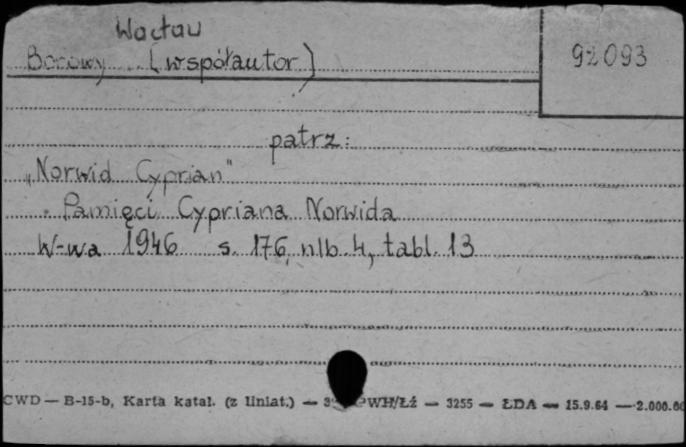 Wacław
Borowy (współautor)
92093
patrz:
„Norwid Cyprian"
Pamięci Cypriana Norwida
W-wa 1946 s. 176, nlb. 4, tabl. 13
CWD — B-15-b, Karta katal. (z liniat.) — PWH/Łź — 3255 — ŁDA — 15.9.64 — 2.000.00